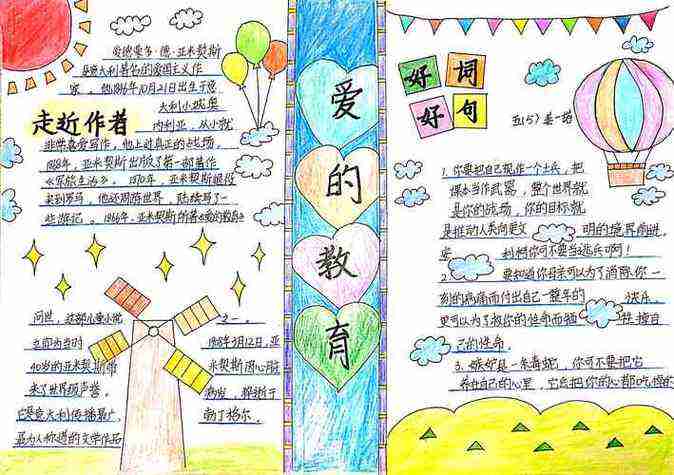 爱的教育
走近作者
爱德蒙多·德·亚米契斯
是意大利著名的爱国主义作
家。他1846年10月21日出生于意
大利小城奥
内利亚，从小就
非常喜爱写作，他上过真正的战场。
1868年，亚米契斯出版了第一部著作
《军旅生活》。1870年，亚米契斯退役
来到罗马，他还周游世界，陆续写了一
些游记。1866年，亚米契斯所著《爱的教育》
问世，这部儿童小说
之一
立即为当时
1908年3月12日，亚
40岁的亚米契斯带
米契斯因心脏
来了世界扬声誉。
病发，病逝于
它是意大利传播最广、
勃丁格尔。
最为人称道的文学作品
好词
好句
五(5)
1. 你要把自己视作一个士兵，把
课本当作武器，整个世界就
是你的战场，你的目标就
是推动人类向更文
明的境界前进，
利柯你可不要当逃兵啊！
2.
要知道你母亲可以为了消除你一
刻的病痛而付出自己一整年的
快乐，
更可以为了救你的性命而牺
牲掉自
己的性命。
3. 嫉妒是一条毒蛇，你可不要把它
养在自己的心里，它会把你的心都吃掉的